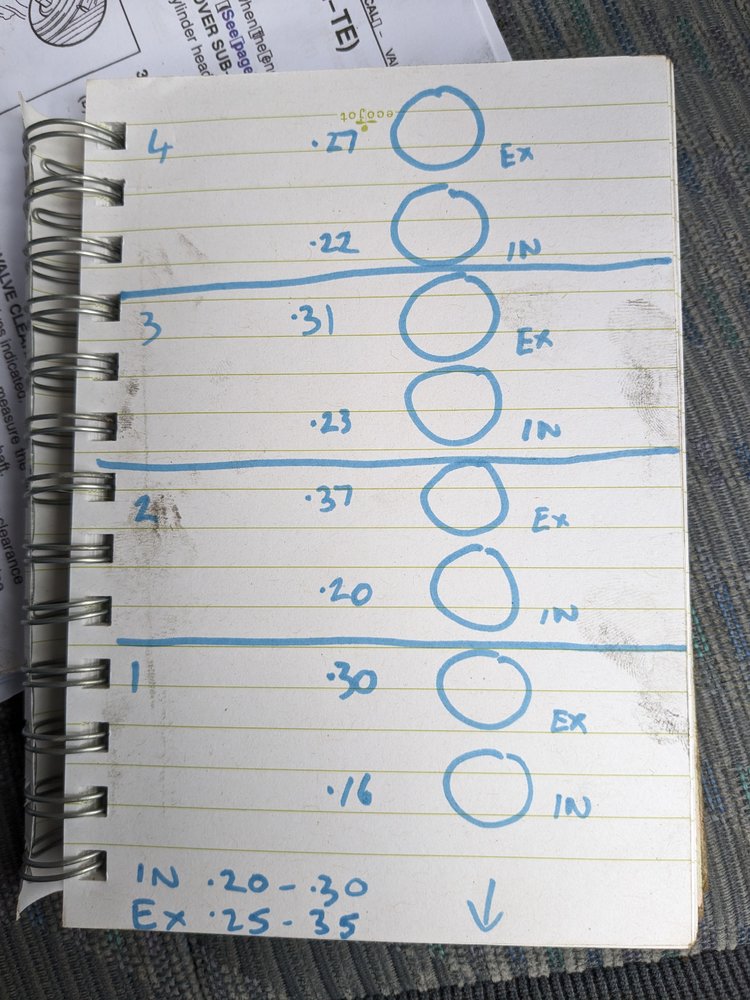 CAL] - VAL
-TE)
hen the en
[See page
OVER SUB-
ylinder head
ecojot
4 .27 Ex
.22 IN
3 .31 Ex
.23 IN
2 .37 Ex
.20 IN
1 .30 Ex
.16 IN
IN .20 - .30
Ex .25 - 35
VALVE CLEA
ves indicated,
measure the
haft.
clearance